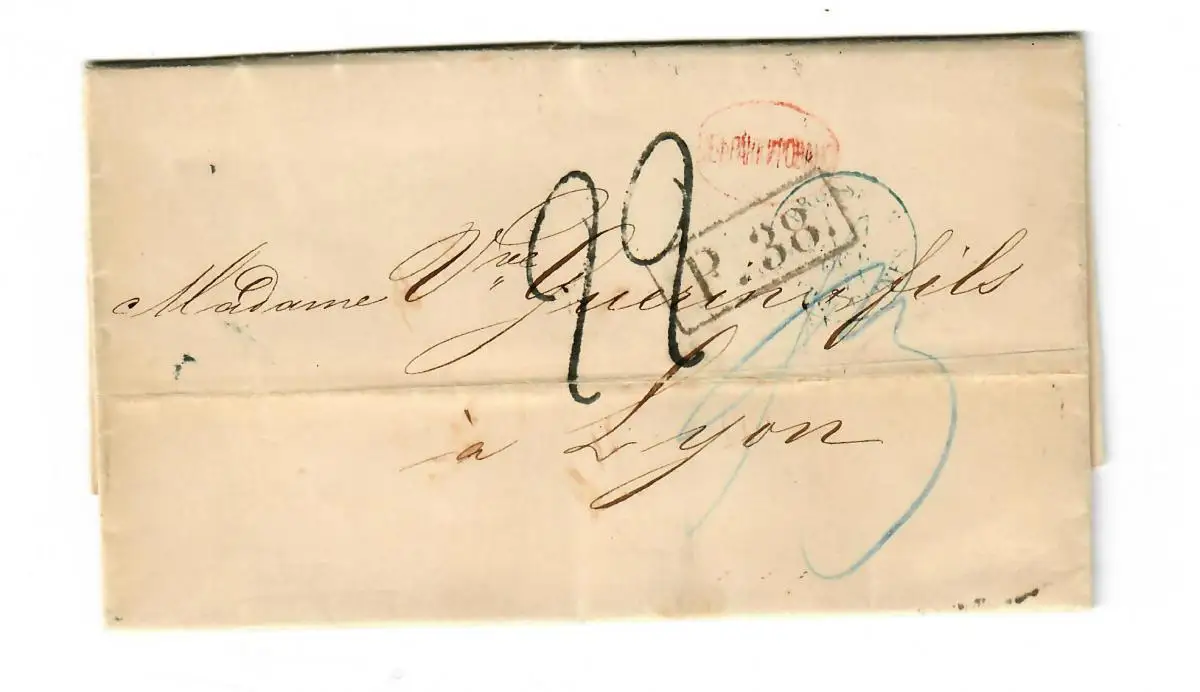 22
P.38.
Madame Vve Guerin & fils
à Lyon